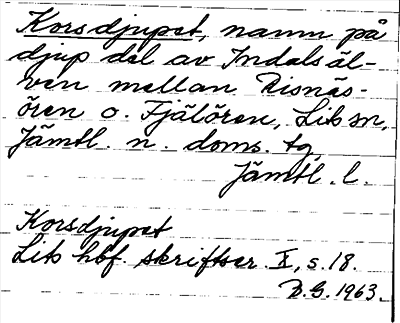 Korsdjupet, namn på
djup del av Indalsäl-
ven mellan Risnäs-
ören o. Fjälören, Lits sn,
Jämtl. n. doms. tg,
Jämtl. l.
Korsdjupet
Lits hbf. skriftser. X, s. 18.
B.G. 1963.